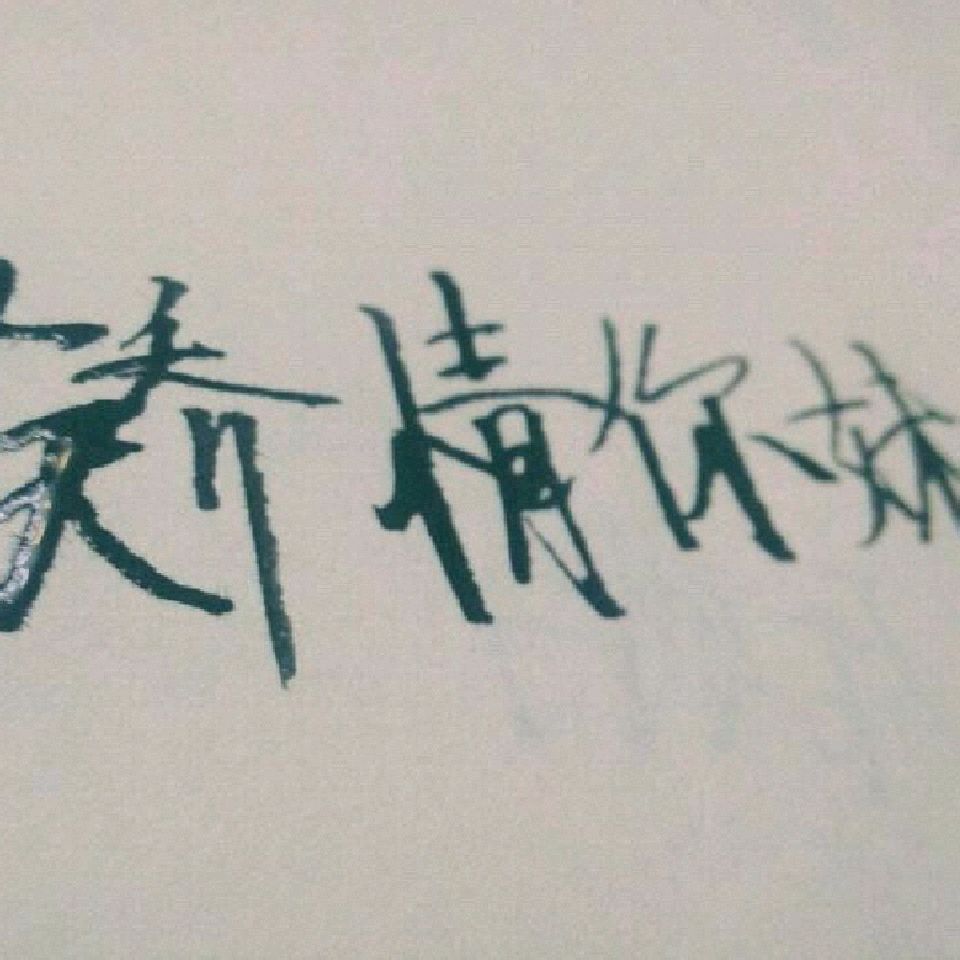 矫情你妹